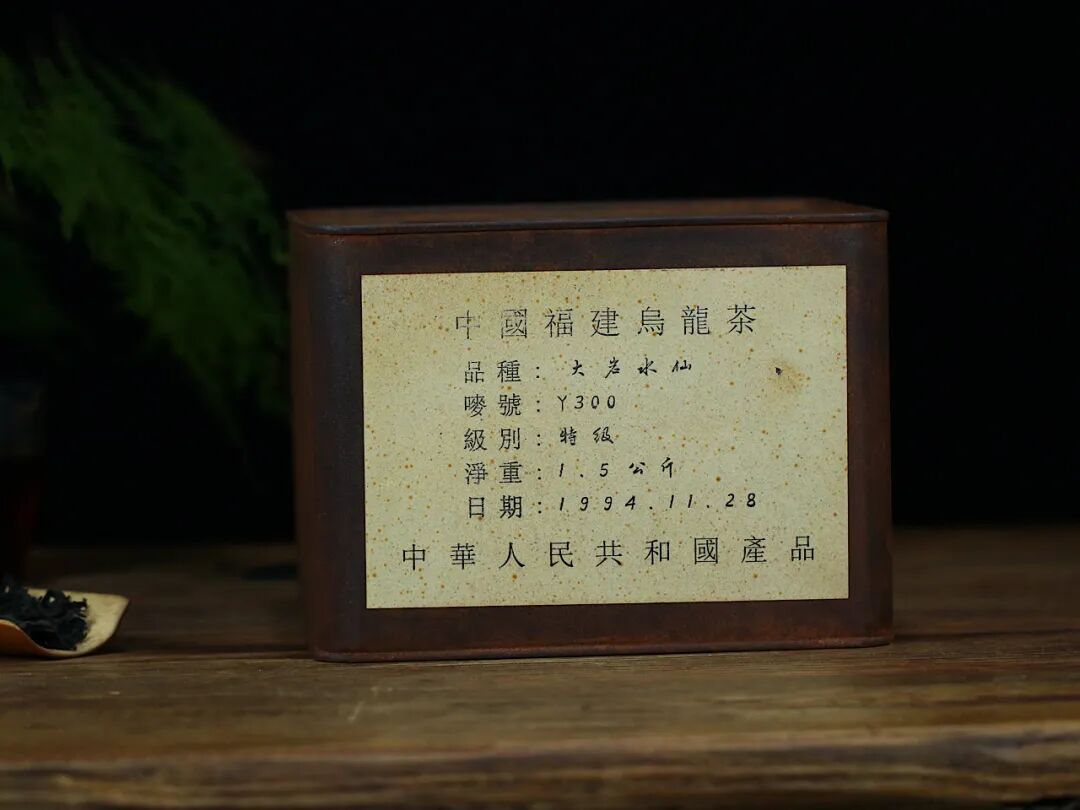 中國福建烏龍茶
品種：大岩水仙
嘜號：Y300
級別：特级
淨重：1.5公斤
日期：1994.11.28
中華人民共和國產品